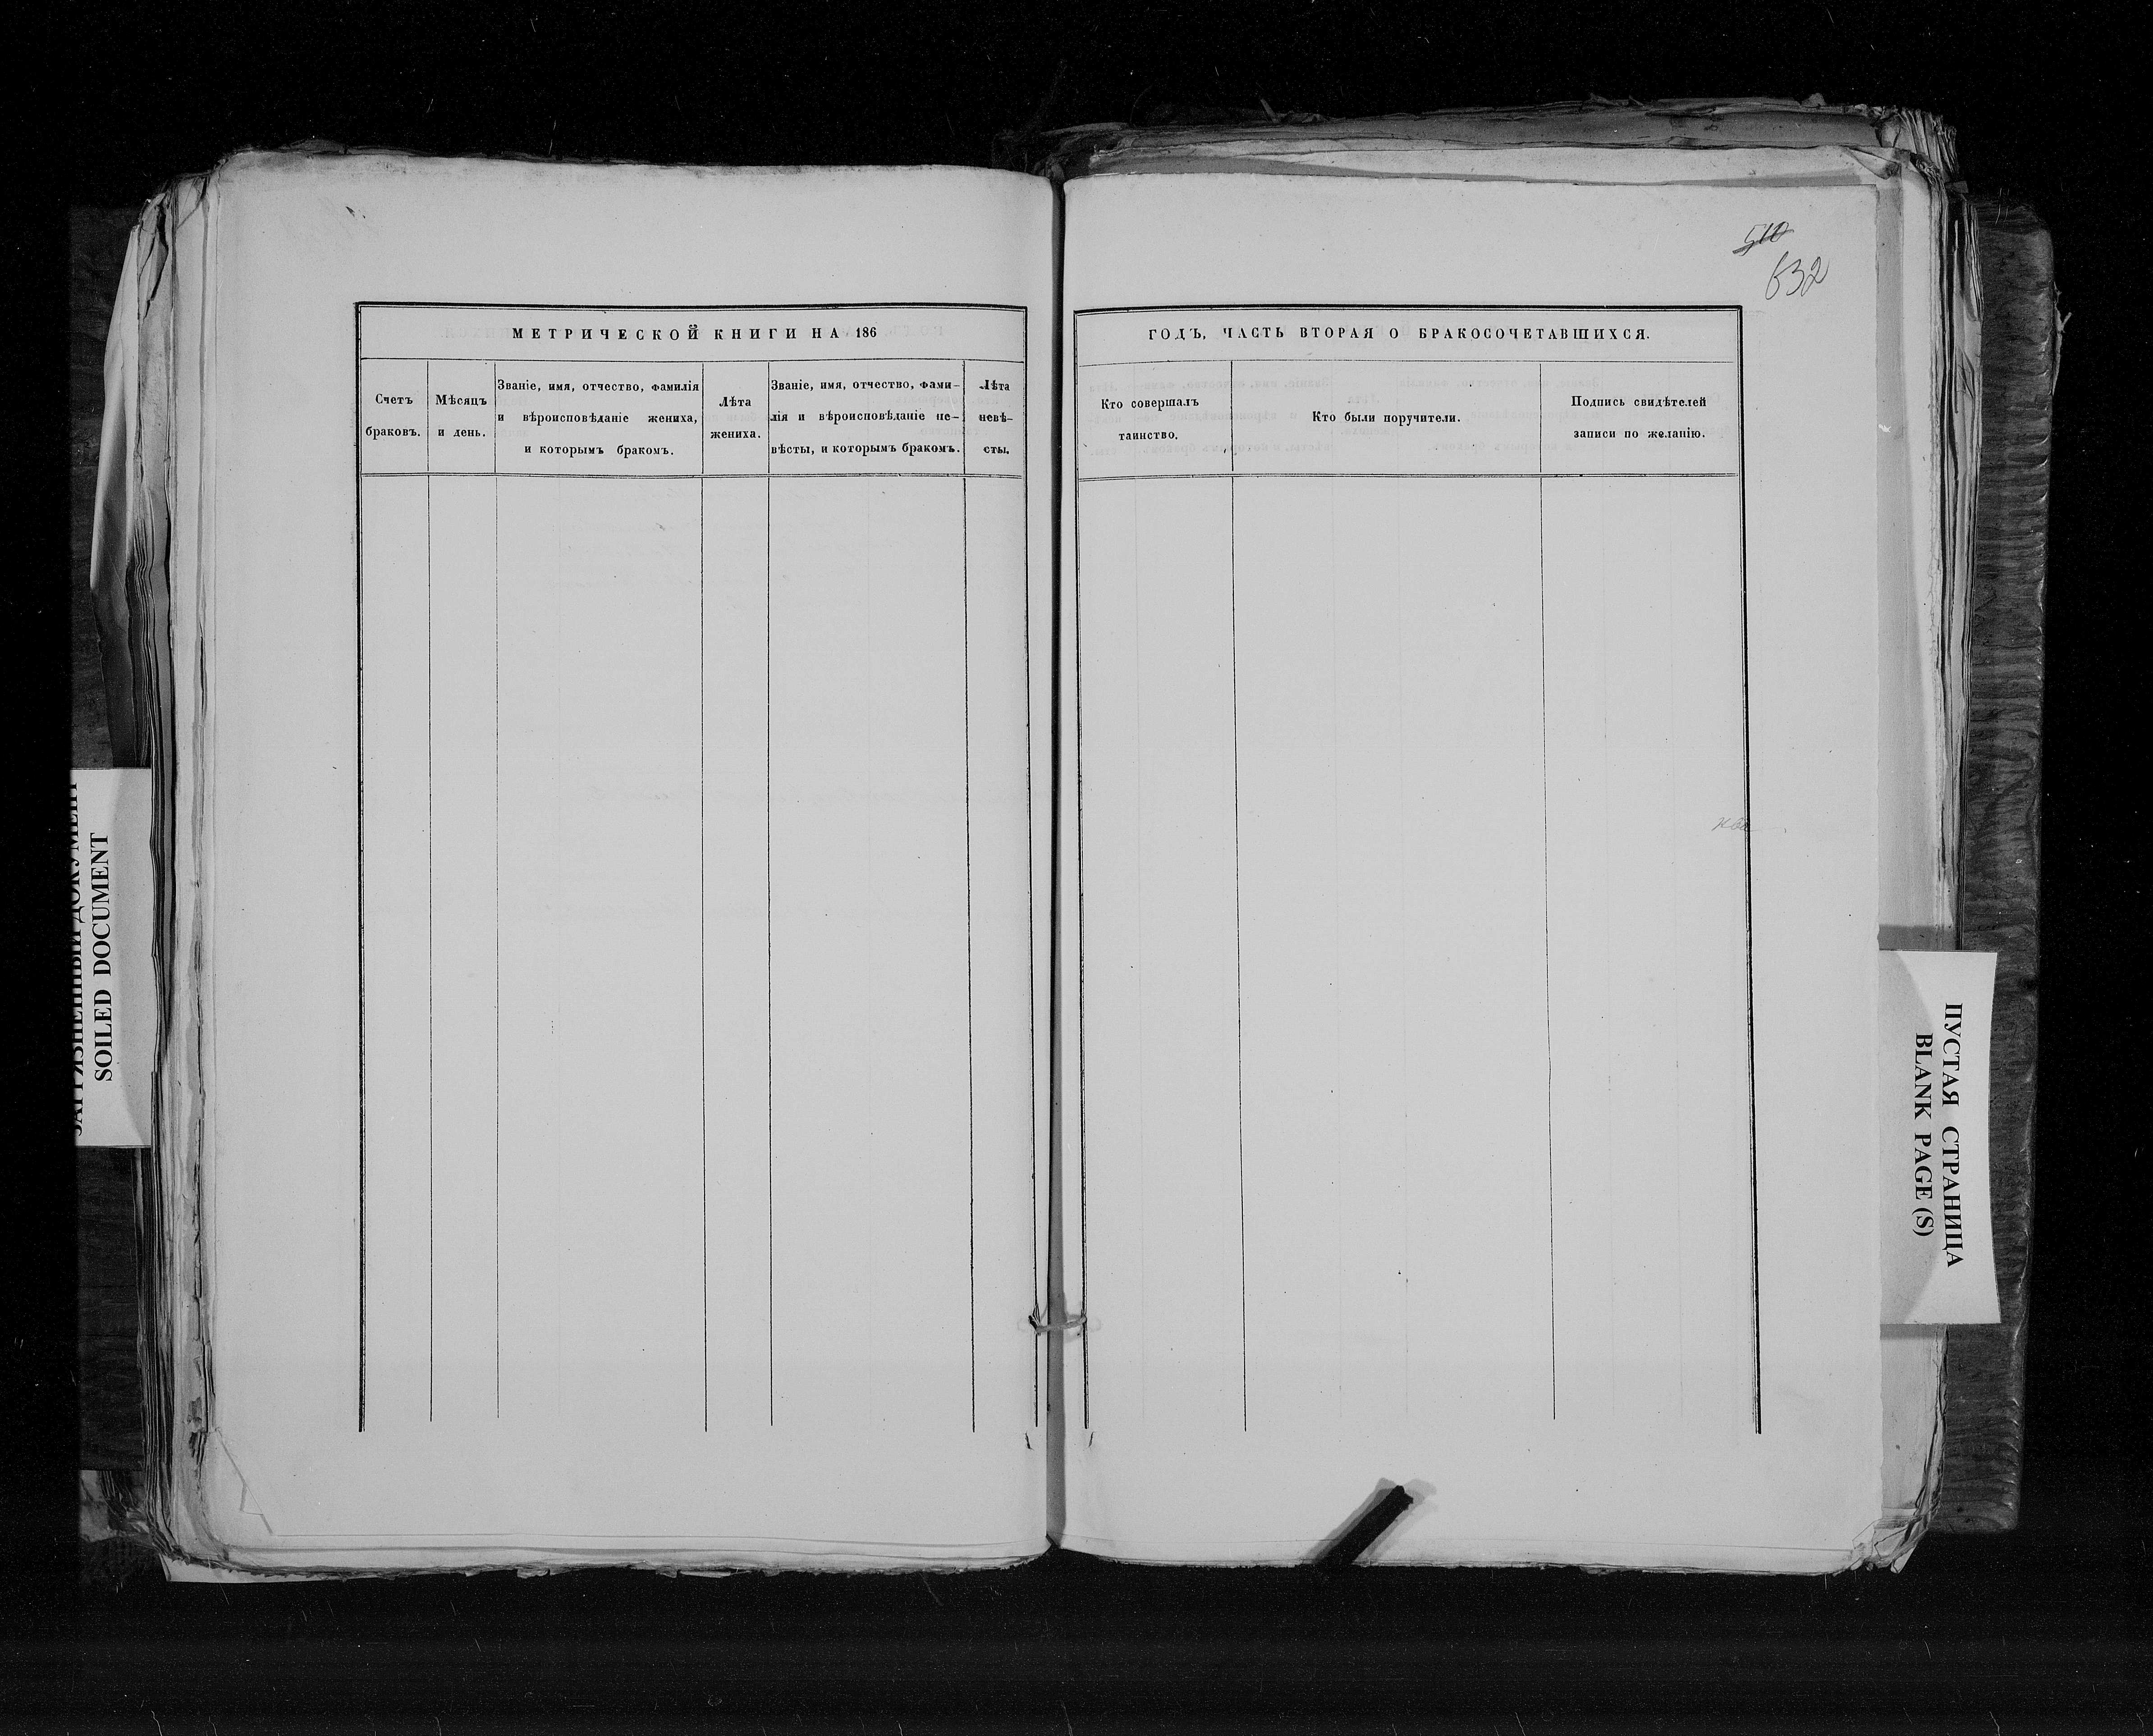 510
632
МЕТРИЧЕСКОЙ КНИГИ НА 186
Счетъ
браковъ.
Мѣсяцъ
и день.
Званіе, имя, отчество, фамилія
и вѣроисповѣданіе жениха,
и которымъ бракомъ.
Лѣта
жениха.
Званіе, имя, отчество, фами-
лія и вѣроисповѣданіе не-
вѣсты, и которымъ бракомъ.
Лѣта
невѣ-
сты.
ГОДЪ, ЧАСТЬ ВТОРАЯ О БРАКОСОЧЕТАВШИХСЯ.
Кто совершалъ
таинство.
Кто были поручители.
Подпись свидѣтелей
записи по желанію.
ЗАГРЯЗНЕННЫЙ ДОКУМЕНТ
SOILED DOCUMENT
ПУСТАЯ СТРАНИЦА
BLANK PAGE (S)